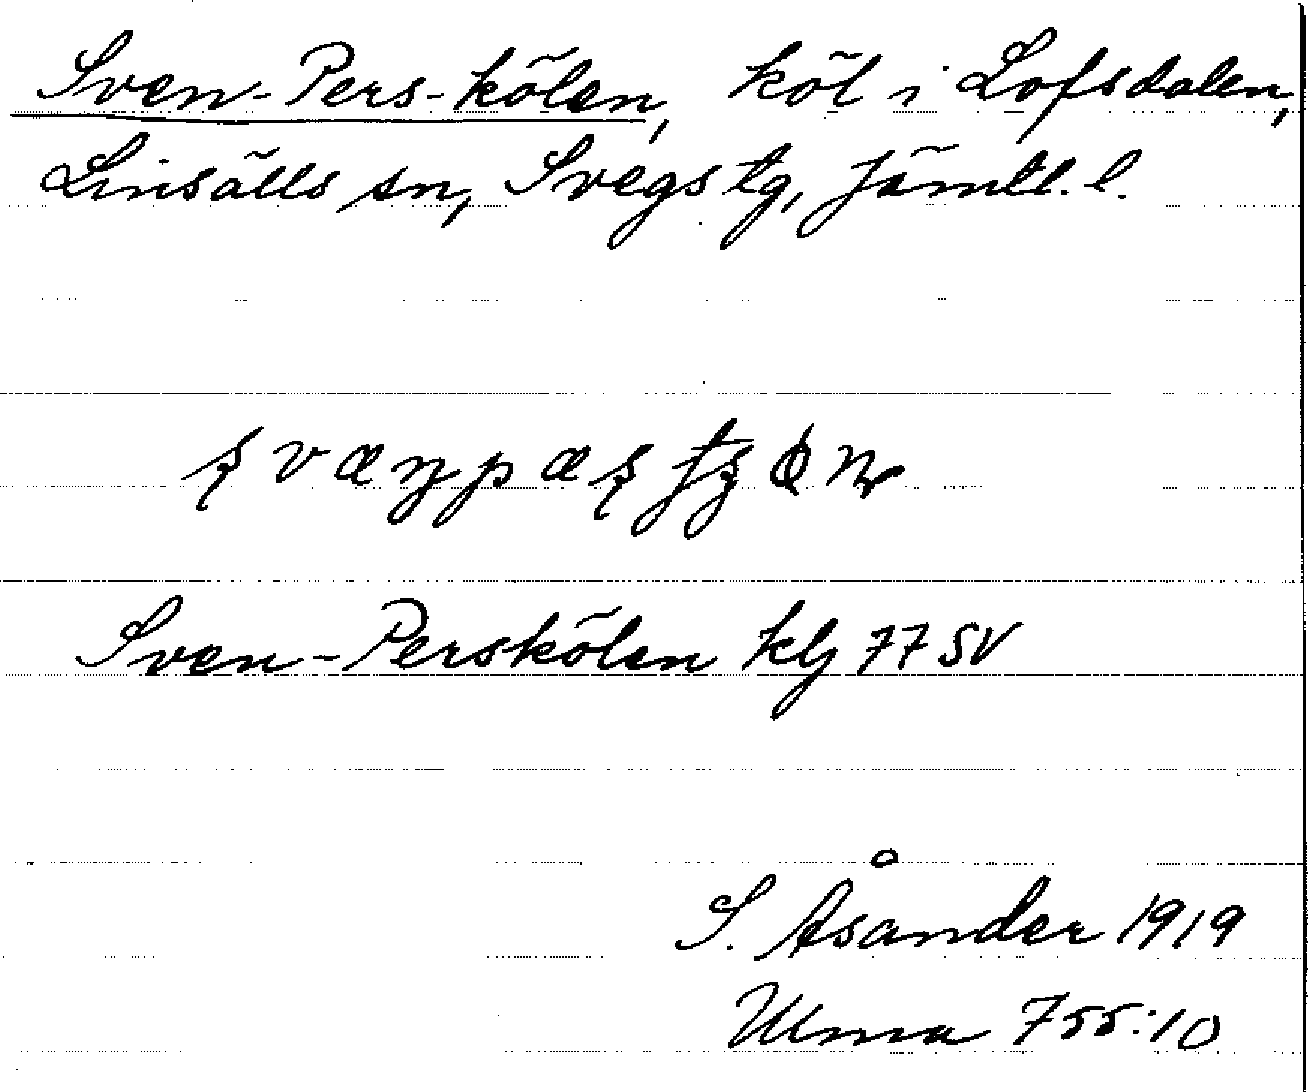 Sven-Pers-kölen, köl i Lofsdalen,
Linsälls sn, Svegs tg, Jämtl. l.
Sven-Perskölen klj 77 SV
S. Åsander 1919
Ulma 755:10